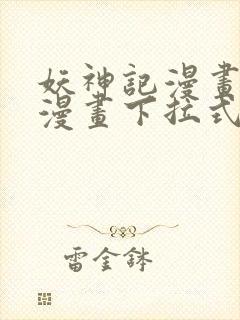 妖神記漫畫
漫畫下拉式
雷金鉢